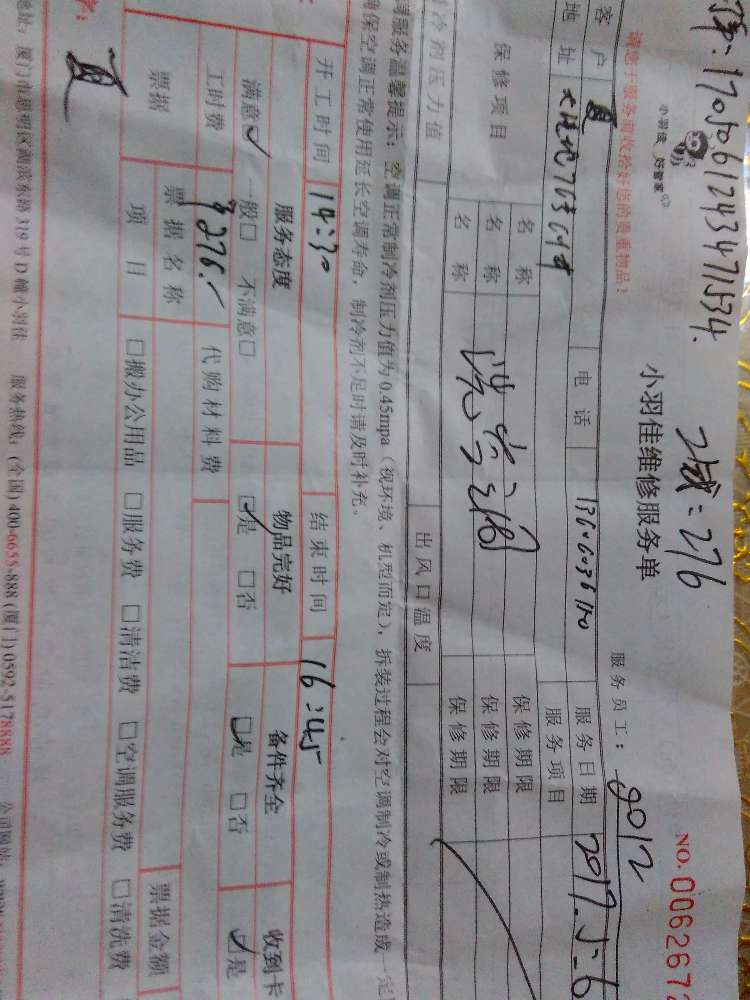 1705061243471534.
2域=276
小羽佳 好管家
小羽佳维修服务单
NO.0006267
请您于服务前收拾好您的贵重物品！
服务员工：9012
客户 夏 电话 服务日期 2017.5.6
地址 服务项目
保修项目 名称 保修期限
名称 保修期限
名称 保修期限
制冷剂压力值 出风口温度
调服务温馨提示：空调正常制冷剂压力值为0.45mpa（视环境、机型而定），拆装过程会对空调制冷或制热造成一定
确保空调正常使用延长空调寿命，制冷剂不足时请及时补充。
开工时间 14:30 结束时间 16:45
服务态度 物品完好 备件齐全 收到卡
满意☑ 一般□ 不满意□ ☑是 □否 ☑是 □否 ☑是
工时费 ¥276.- 代购材料费
票据 票据名称 票据金额
项目 □搬办公用品 □服务费 □清洁费 □空调服务费 □清洗费
字：夏
地址：厦门市思明区湖滨东路319号D幢小羽佳 服务热线：(全国)400-6655-888 (厦门)0592-5178888 公司网站：www